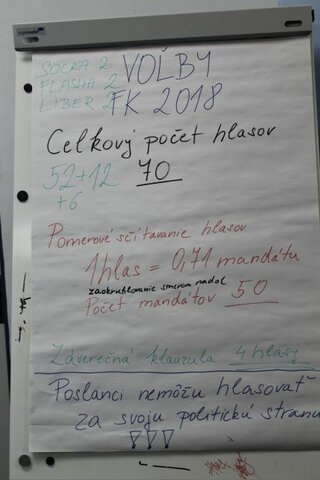 SOCKA 2
FLASHA 2
LIBER 2
VOĽBY
FK 2018
Celkový počet hlasov
52+12
+6
70
Pomerové sčítavanie hlasov
1 hlas = 0,71 mandátu
zaokruhlovanie smerom nadol
Počet mandátov 50
Záverečná klauzula 4 hlasy
Poslanci nemôžu hlasovať
za svoju politickú stranu
!!!